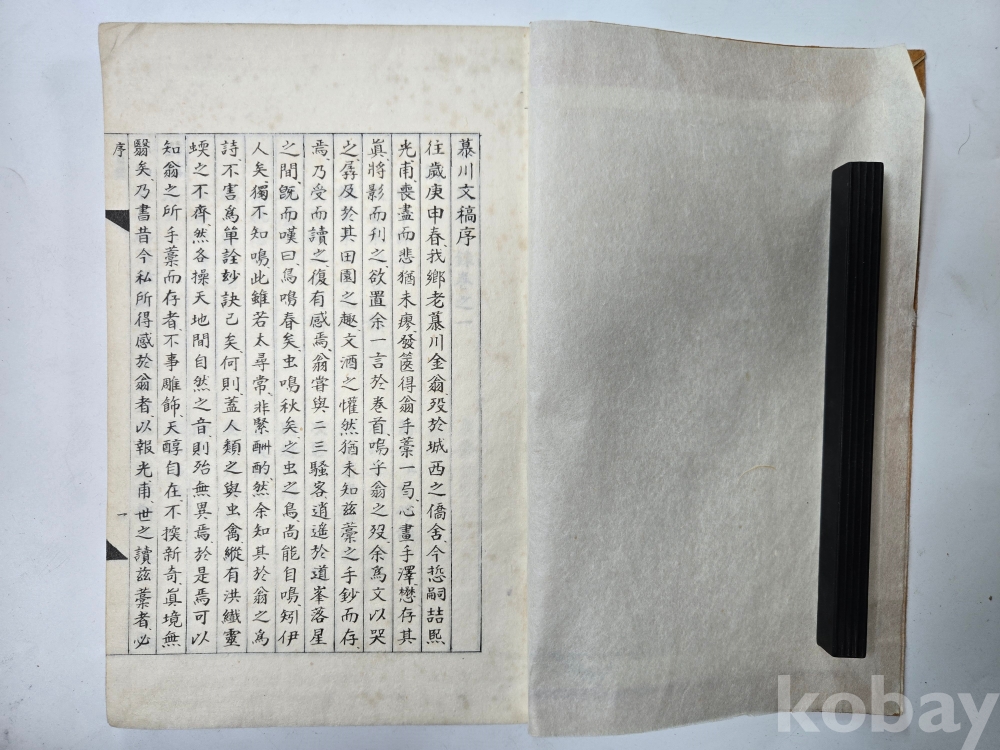 慕川文稿序
往歲庚申春、我鄉老慕川金翁、歿於城西之僑舍、今悊嗣喆熙
光甫、喪盡而悲猶未瘳、發篋得翁手藁一局、心畫手澤、懋存其
眞、將影而刊之、欲置余一言於卷首、嗚乎、翁之歿、余爲文以哭
之、孱及於其田園之趣、文酒之懽、然猶未知玆藁之手鈔而存
焉、乃受而讀之、復有感焉、翁甞與二三騷客、逍遙於道峯落星
之間、旣而嘆曰、鳥鳴春矣、虫鳴秋矣、之虫之鳥、尚能自鳴、矧伊
人矣、獨不知鳴、此雖若太尋常、非緊酬酌、然余知其於翁之爲
詩、不害爲單詮玅訣已矣、何則、蓋人類之與虫禽、縱有洪纖靈
蝡之不齊、然各操天地間自然之音、則殆無異焉、於是焉可以
知翁之所手藁而存者、不事雕飾、天醇自在、不揬新奇、眞境無
翳矣、乃書昔今私所得感於翁者、以報光甫、世之讀玆藁者、必
序
一
kobay